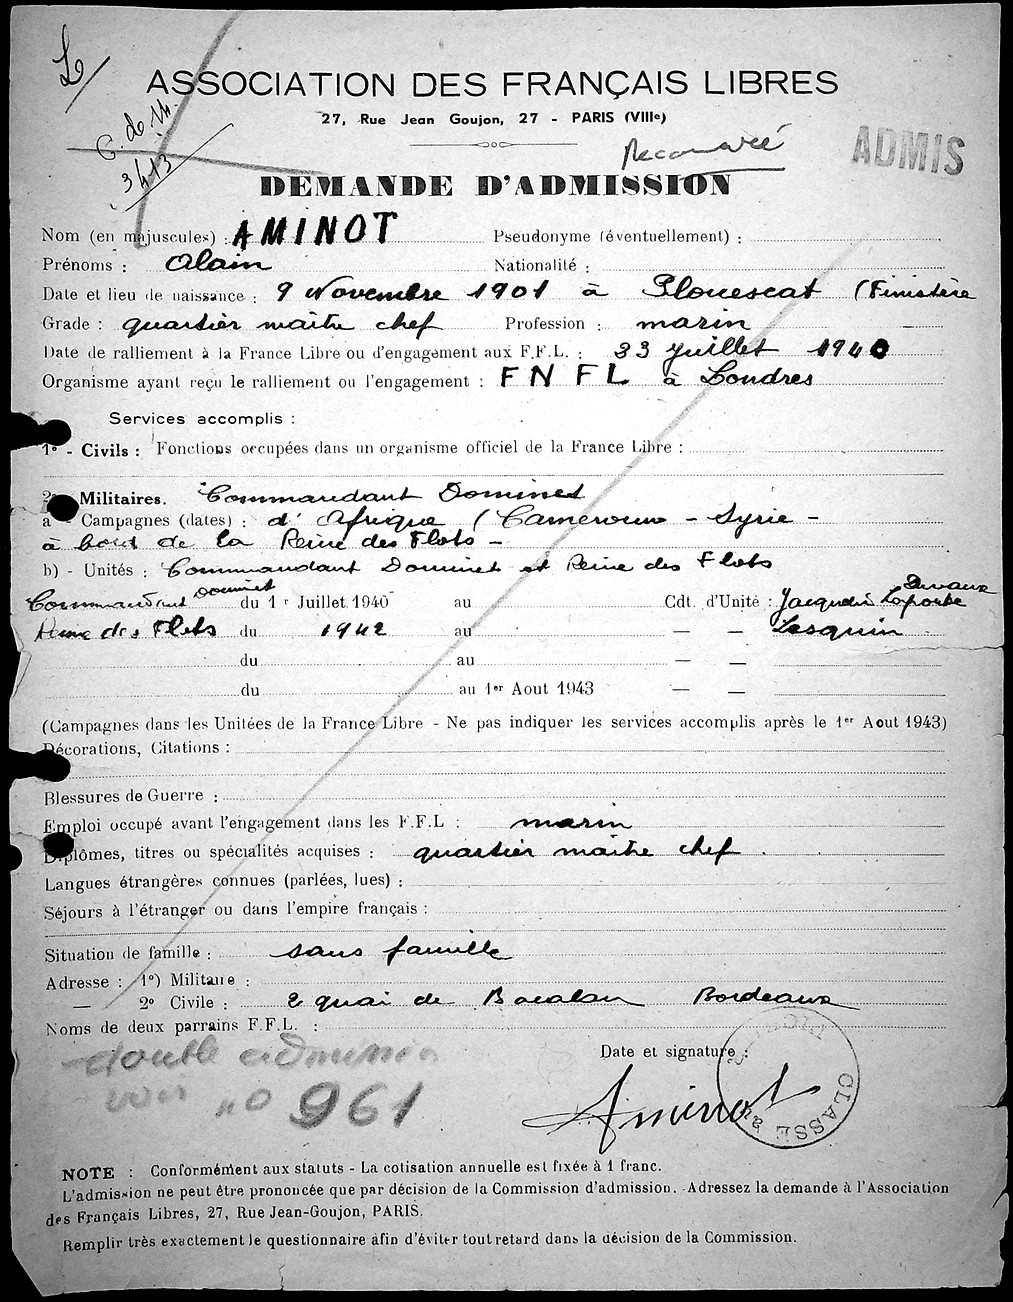 ASSOCIATION DES FRANÇAIS LIBRES
27, Rue Jean Goujon, 27 - PARIS (VIIIe)
3413
ADMIS
DEMANDE D'ADMISSION
Nom (en majuscules) : AMINOT Pseudonyme (éventuellement) :
Prénoms : Alain Nationalité :
Date et lieu de naissance : 9 Novembre 1901 à Plouescat (Finistère
Grade : quartier maître chef Profession : marin
Date de ralliement à la France Libre ou d'engagement aux F.F.L. : 23 Juillet 1940
Organisme ayant reçu le ralliement ou l'engagement : FNFL à Londres
Services accomplis :
1º - Civils : Fonctions occupées dans un organisme officiel de la France Libre :
2º Militaires. Commandant Dominet
a - Campagnes (dates) : d'Afrique (Cameroun - Syrie -
à bord de la Reine des Flots -
b) - Unités : Commandant Dominet et Reine des Flots
Commandant Dominet du 1er Juillet 1940 au Cdt. d'Unité : Jacquelin Laporte
Reine des Flots du 1942 au — — Lesquin
du au — —
du au 1er Aout 1943 — —
(Campagnes dans les Unitées de la France Libre - Ne pas indiquer les services accomplis après le 1er Aout 1943)
Décorations, Citations :
Blessures de Guerre :
Emploi occupé avant l'engagement dans les F.F.L : marin
Diplômes, titres ou spécialités acquises : quartier maître chef.
Langues étrangères connues (parlées, lues) :
Séjours à l'étranger ou dans l'empire français :
Situation de famille : sans famille
Adresse : 1º) Militaire :
— 2º Civile : 2 quai de Bacalan Bordeaux
Noms de deux parrains F.F.L. :
double admission
voir nº 961
Date et signature :
Aminot
CLASSE au
NOTE : Conformément aux statuts - La cotisation annuelle est fixée à 1 franc.
L'admission ne peut être prononcée que par décision de la Commission d'admission. - Adressez la demande à l'Association
des Français Libres, 27, Rue Jean-Goujon, PARIS.
Remplir très exactement le questionnaire afin d'éviter tout retard dans la décision de la Commission.